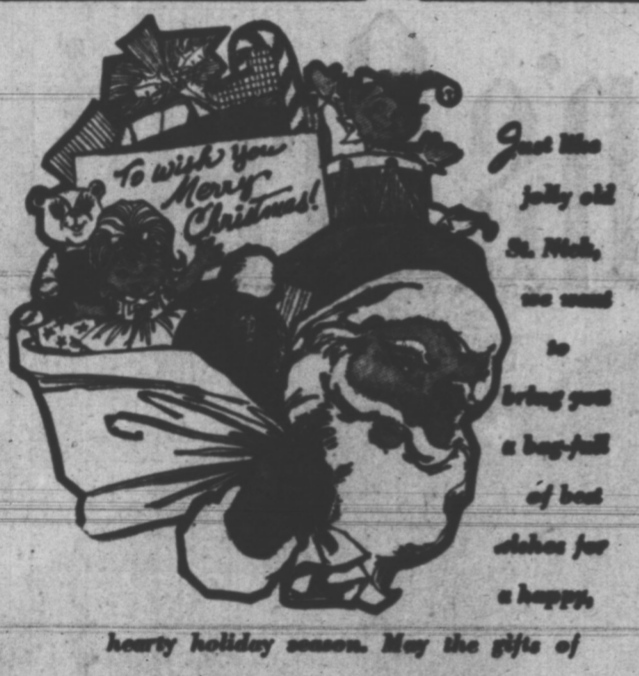 To wish you
Merry
Christmas!
Just like
jolly old
St. Nick,
we want
to
bring you
a bag-full
of best
wishes for
a happy,
hearty holiday season. May the gifts of